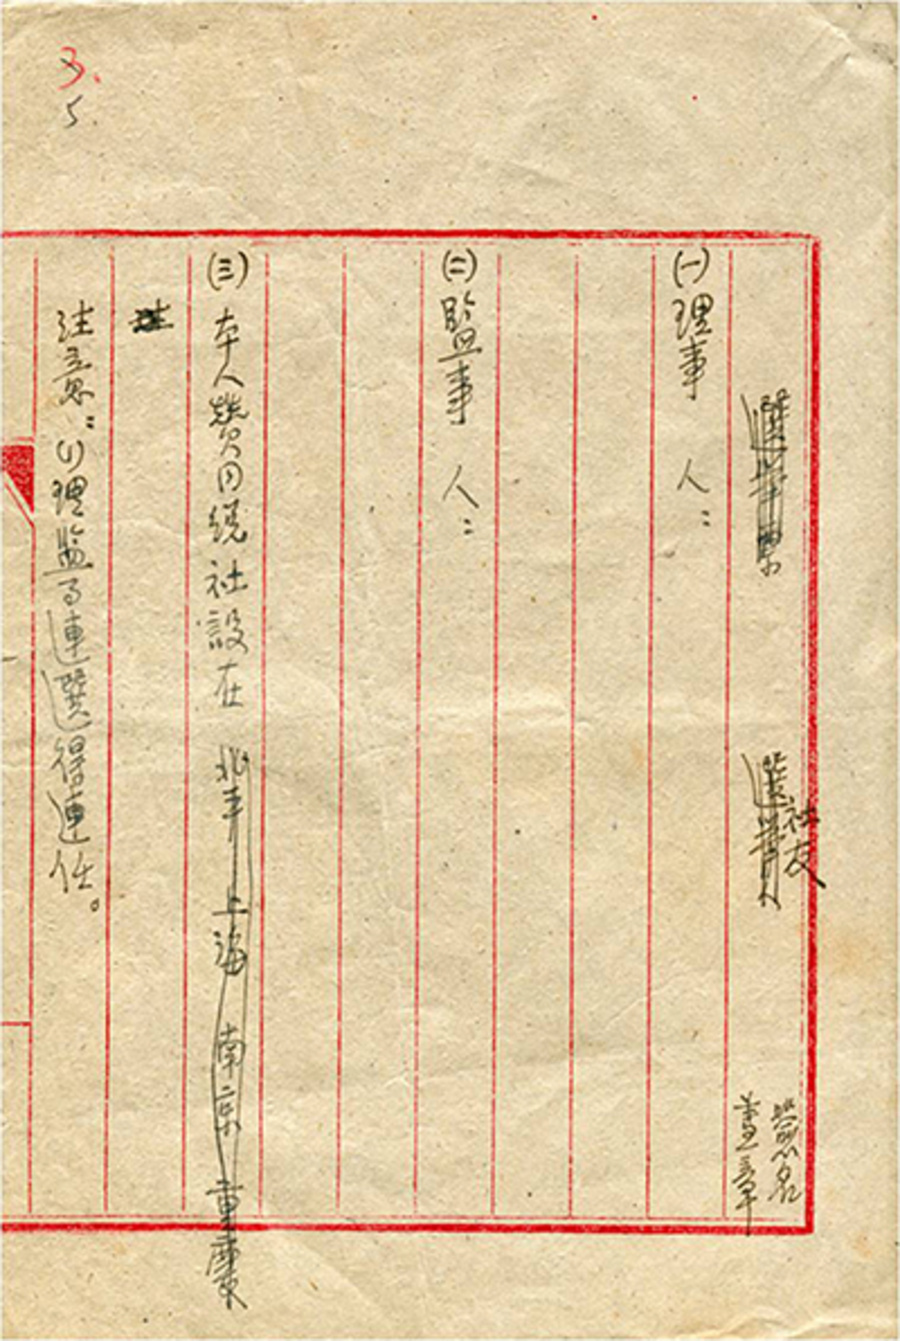 3.
5.
選舉票
選舉人
社友
簽名
蓋章
(一)理事 人:
(二)監事 人:
(三)本人贊同總社設在 北平 上海 南京 重慶
注意:(1)理監事連選得連任。